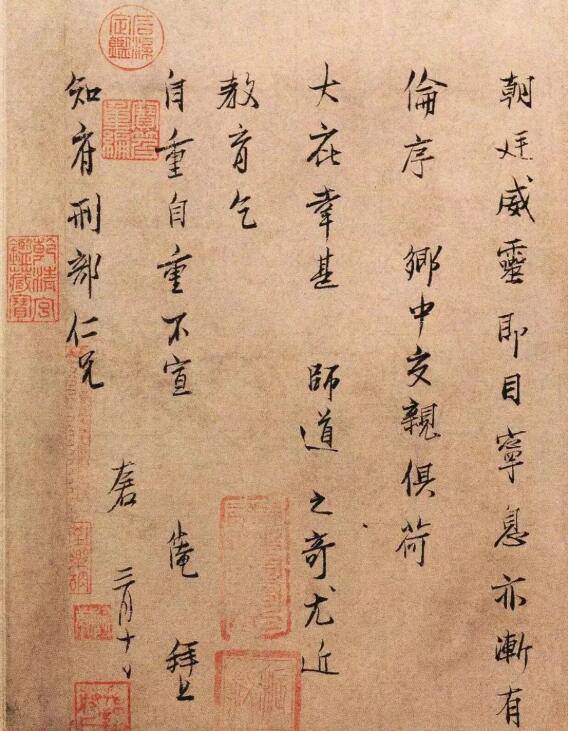 朝廷威靈即目寧息亦漸有
倫序 鄉中交親俱荷
大庇幸甚 師道之奇尤近
教育乞
自重自重不宣 淹 拜上
知府刑部仁兄
三月十日
乾清宮鑑藏寶